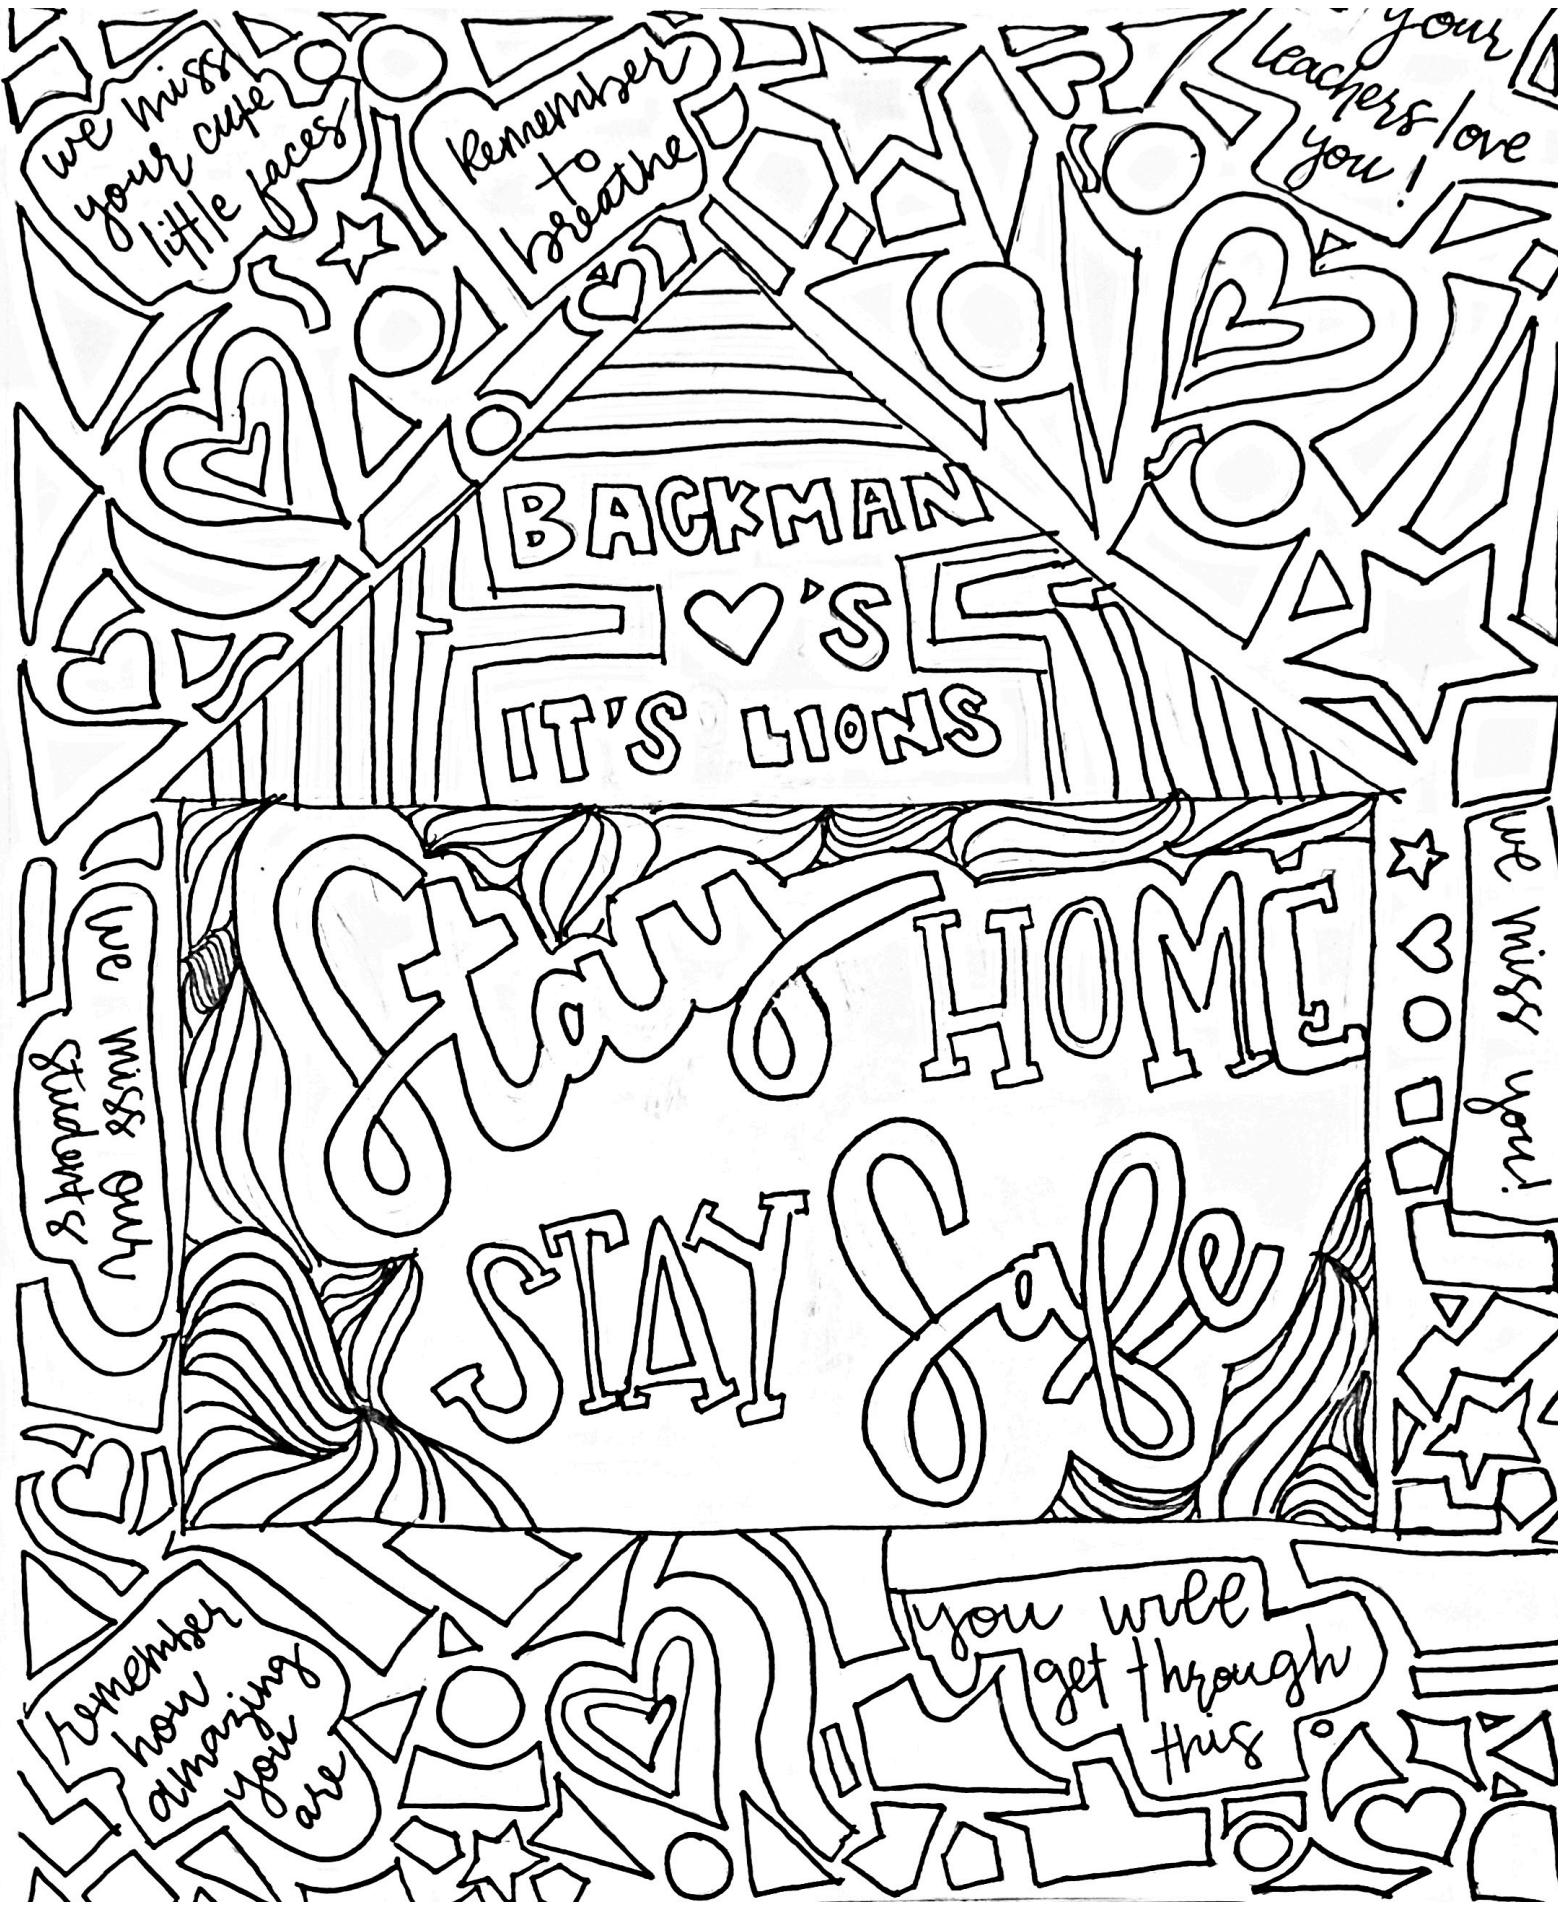 we miss
your cute
little faces
Remember
to
breathe
your
teachers love
you!
BACKMAN
♥'S
IT'S LIONS
Stay HOME
STAY Safe
we miss our
students
we miss you!
remember
how
amazing
you
are
you will
get through
this